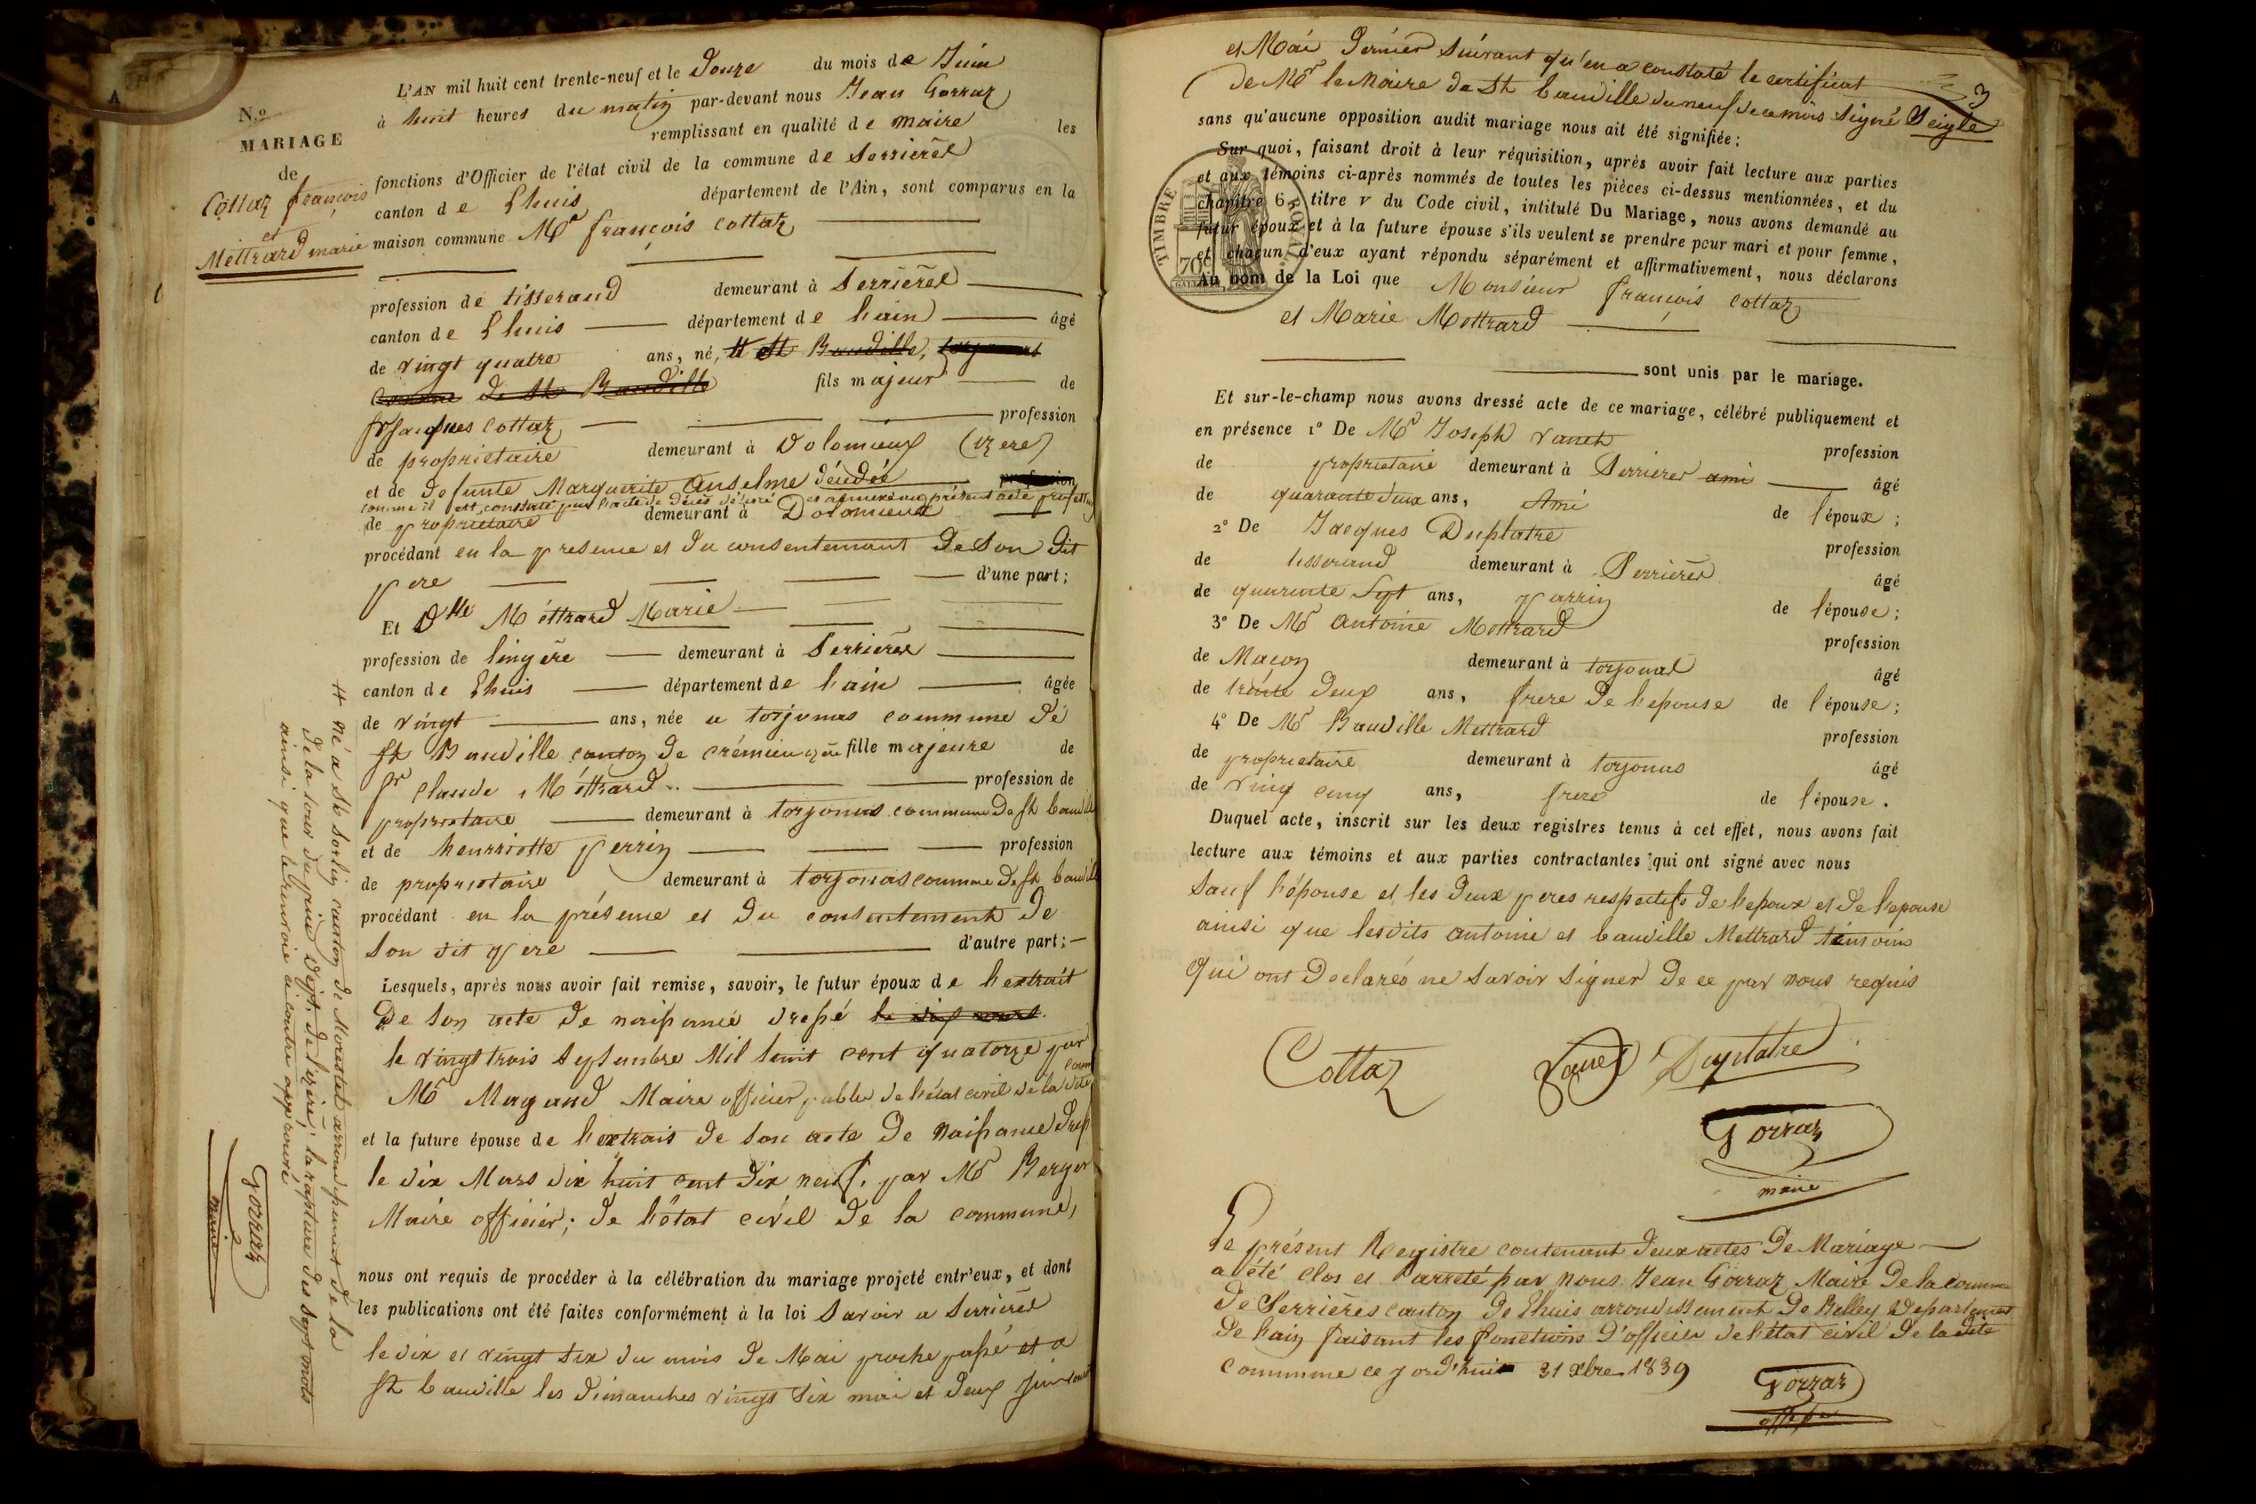 N.o
MARIAGE
de
Cottaz françois
et
Mettrard marie
L'AN mil huit cent trente-neuf et le Douze du mois de Juin
à huit heures du matin par-devant nous Jean Gorraz
remplissant en qualité de maire les
fonctions d'Officier de l'état civil de la commune de Serrières
canton de Lhuis département de l'Ain, sont comparus en la
maison commune Mr françois Cottaz
profession de tisserand demeurant à Serrières
canton de Lhuis département de lain âgé
de vingt quatre ans, né, H St Baudille, torjonas
commune de St Baudille fils majeur de
sr Jacques Cottaz profession
de proprietaire demeurant à Dolomieux (izere)
et de defunte Marguerite Anselme décédée profession
comme il est constaté par l'acte de décès délivré et annexé au présent acte
de proprietaire demeurant à Dolomieux
procédant en la presence et du consentement de son dit
pere d'une part;
Et Dlle Méttrard Marie
profession de lingère demeurant à Serrières
canton de Lhuis département de lain âgée
de vingt ans, née a torjonas commune de
St Baudille canton de crémieu fille majeure de
sr Claude Méttrard profession de
proprietaire demeurant à torjonas commune de St baudille
et de henriette perrin profession
de proprietaire demeurant à torjonas commune de St baudille
procédant en la présence et du consentement de
son dit pere d'autre part;
Lesquels, après nous avoir fait remise, savoir, le futur époux de l'extrait
De son acte de naissance dressé
le vingt trois Septembre Mil huit cent quatorze par
Mr Magand Maire officier public de l'état civil de la dite com
et la future épouse de l'extrait de son acte de Naissance dress
le dix Mars dix huit cent dix neuf, par Mr Berger
Maire officier; de l'état civil de la commune,
nous ont requis de procéder à la célébration du mariage projeté entr'eux, et dont
les publications ont été faites conformément à la loi Savoir a Serrières
le dix et vingt six du mois de Mai proche passé et a
St baudille les dimanches vingt six mai et deux Juin
H né a St Sorlin canton de Morestel arrondissement de la
de la tour du pin Dept de l'izère; la rapture des sept mots
ainsi que le renvoie ci contre approuvé
Gorraz
maire
3
et Mai dernier suivant qu'en a constaté le certificat
de Mr le Maire de St baudille du neuf de ce mois signé Seigle
sans qu'aucune opposition audit mariage nous ait été signifiée;
Sur quoi, faisant droit à leur réquisition, après avoir fait lecture aux parties
et aux témoins ci-après nommés de toutes les pièces ci-dessus mentionnées, et du
chapitre 6, titre V du Code civil, intitulé Du Mariage, nous avons demandé au
futur époux et à la future épouse s'ils veulent se prendre pour mari et pour femme,
et chacun d'eux ayant répondu séparément et affirmativement, nous déclarons
Au nom de la Loi que Monsieur françois Cottaz
TIMBRE ROYAL
70c
et Marie Mettrard
sont unis par le mariage.
Et sur-le-champ nous avons dressé acte de ce mariage, célébré publiquement et
en présence 1o De Mr Joseph
profession
de proprietaire demeurant à Serrieres ami âgé
de quarante deux ans, Ami de l'époux;
2o De Jacques Duplatre
profession
de tisserand demeurant à Serrières âgé
de quarante Sept ans, parrin de l'épouse;
3o De Mr Antoine Mettrard
profession
de Maçon demeurant à torjonas âgé
de trente deux ans, frere de l'epouse de l'épouse;
4o De Mr Baudille Mettrard
profession
de proprietaire demeurant à torjonas âgé
de Vinq cinq ans, frere de l'épouse.
Duquel acte, inscrit sur les deux registres tenus à cet effet, nous avons fait
lecture aux témoins et aux parties contractantes qui ont signé avec nous
Sauf l'épouse et les deux peres respectifs de l'epoux et de l'epouse
ainsi que lesdits antoine et baudille Mettrard témoin
Qui ont Declarés ne Savoir signer de ce par nous requis
Cottaz
Duplatre
Gorraz
maire
Le présent Registre contenant deux actes de Mariage
a été clos et arreté par nous Jean Gorraz Maire de la commune
de Serrières canton de Lhuis arrondissement de Belley Departement
de lain faisant les fonctions d'officier de l'état civil de la dite
Commune ce jourd'hui 31 xbre 1839
Gorraz